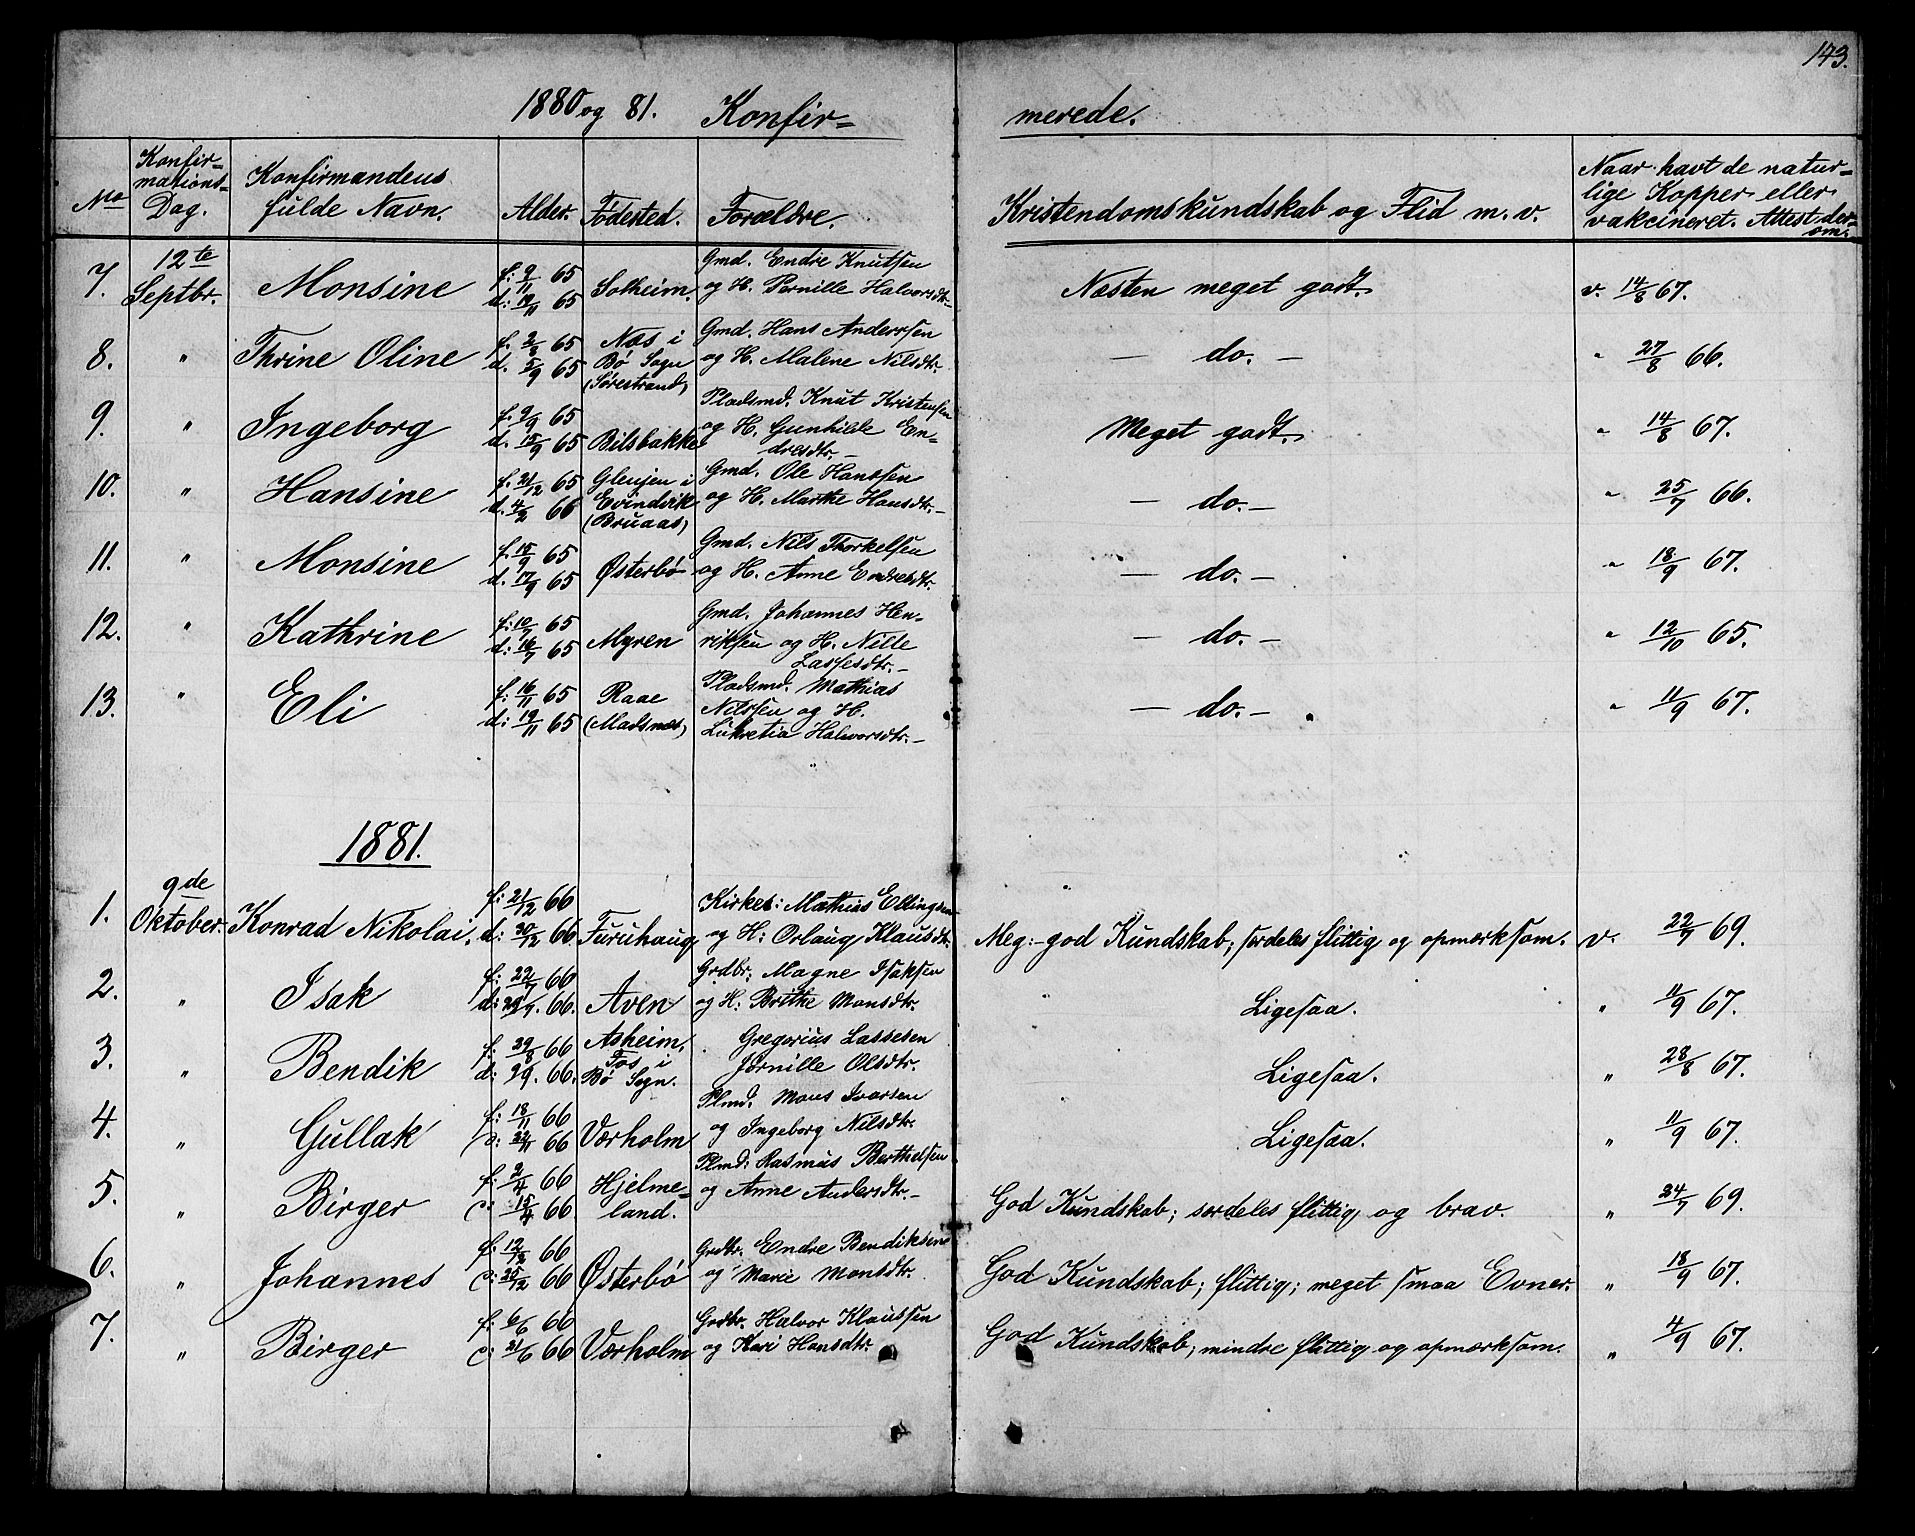 143.
1880 og 81. Konfirmerede.
No Konfirmations-Dag. Konfirmandens fulde Navn. Alder. Födested. Forældre. Kristendomskundskab og Flid m. v. Naar havt de naturlige Kopper eller vakcineret. Attest derom.
7. 12te Septbr. Monsine f: 9/11 65 d: 19/11 65 Solheim. Gmd. Endre Knutsen og H. Pernille Halvorsdtr. Næsten meget godt. v. 14/8 67.
8. " Thrine Oline f. 2/8 65 d. 5/9 65 Næs i Bø Sogn (Sørestrand) Gmd. Hans Anderssen og H. Malene Nilsdtr. — do. — " 27/8 66.
9. " Ingeborg f. 9/9 65 d. 15/9 65 Bilsbakke Pladsmd. Knut Kristensen og H. Gunhilde Endresdtr. — Meget godt. " 14/8 67.
10. " Hansine f. 21/12 65 d. 4/2 66 Glenjen i Evindvik (Bruaas) Gmd. Ole Hanssen og H. Marthe Hansdtr. — — do. — " 25/7 66.
11. " Monsine f. 15/9 65 d. 17/9 65 Østerbø Gmd. Nils Thorkelsen og H. Anne Endresdtr. — do. — " 18/9 67.
12. " Kathrine f: 10/7 65 d: 16/7 65 Myren Gmd. Johannes Henriksen og H. Nille Lassesdtr. — — do. — " 12/10 65.
13. " Eli f: 16/11 65 d: 19/11 65 Raae (Madsnæs) Pladsmd. Mathias Nilssen og H. Lukretia Halvorsdtr. — — do. — " 11/9 67.
1881.
1. 9de Oktober. Konrad Nikolai. f: 21/12 66 d: 30/12 66 Furuhaug Kirkes: Mathias Ellingsen og H: Orlaug Klausdtr. Meg: god Kundskab; særdeles flittig og opmærksom. v. 22/7 69.
2. " Isak f: 22/7 66 d: 29/9. 66. Aven Grdbr: Magne Isaksen og H: Brithe Monsdtr. Ligesaa. " 11/9 67.
3. " Bendik f: 29/8 66 d: 29. 66. Asheim, Fos i Bø Sogn. Gregorius Lassesen Jørnille Olsdtr. Ligesaa. " 28/8 67.
4. " Gullak f: 18/11 66 d: 22/11 66 Værholm Plmd. Mons Ivarsen og Ingeborg Nilsdtr. Ligesaa. " 11/9 67.
5. " Birger f: 2/4 66 d: 15/4 66 Hjelmeland. Plmd: Rasmus Berthelsen og Anne Andersdtr. — God Kundskab; særdeles flittig og brav. " 24/7 69.
6. " Johannes f. 12/12 66 d: 25/12 66 Østerbø Grdbr. Endre Bendiksen og Marie Monsdtr. God Kundskab; flittig; meget smaa Evner. " 18/9 67.
7. " Birger f: 6/6 66 d: 21/6 66 Værholm Grdbr. Halvor Klaussen og Kari Hansdtr. God Kundskab; mindre flittig og opmærksom. " 4/9 67.